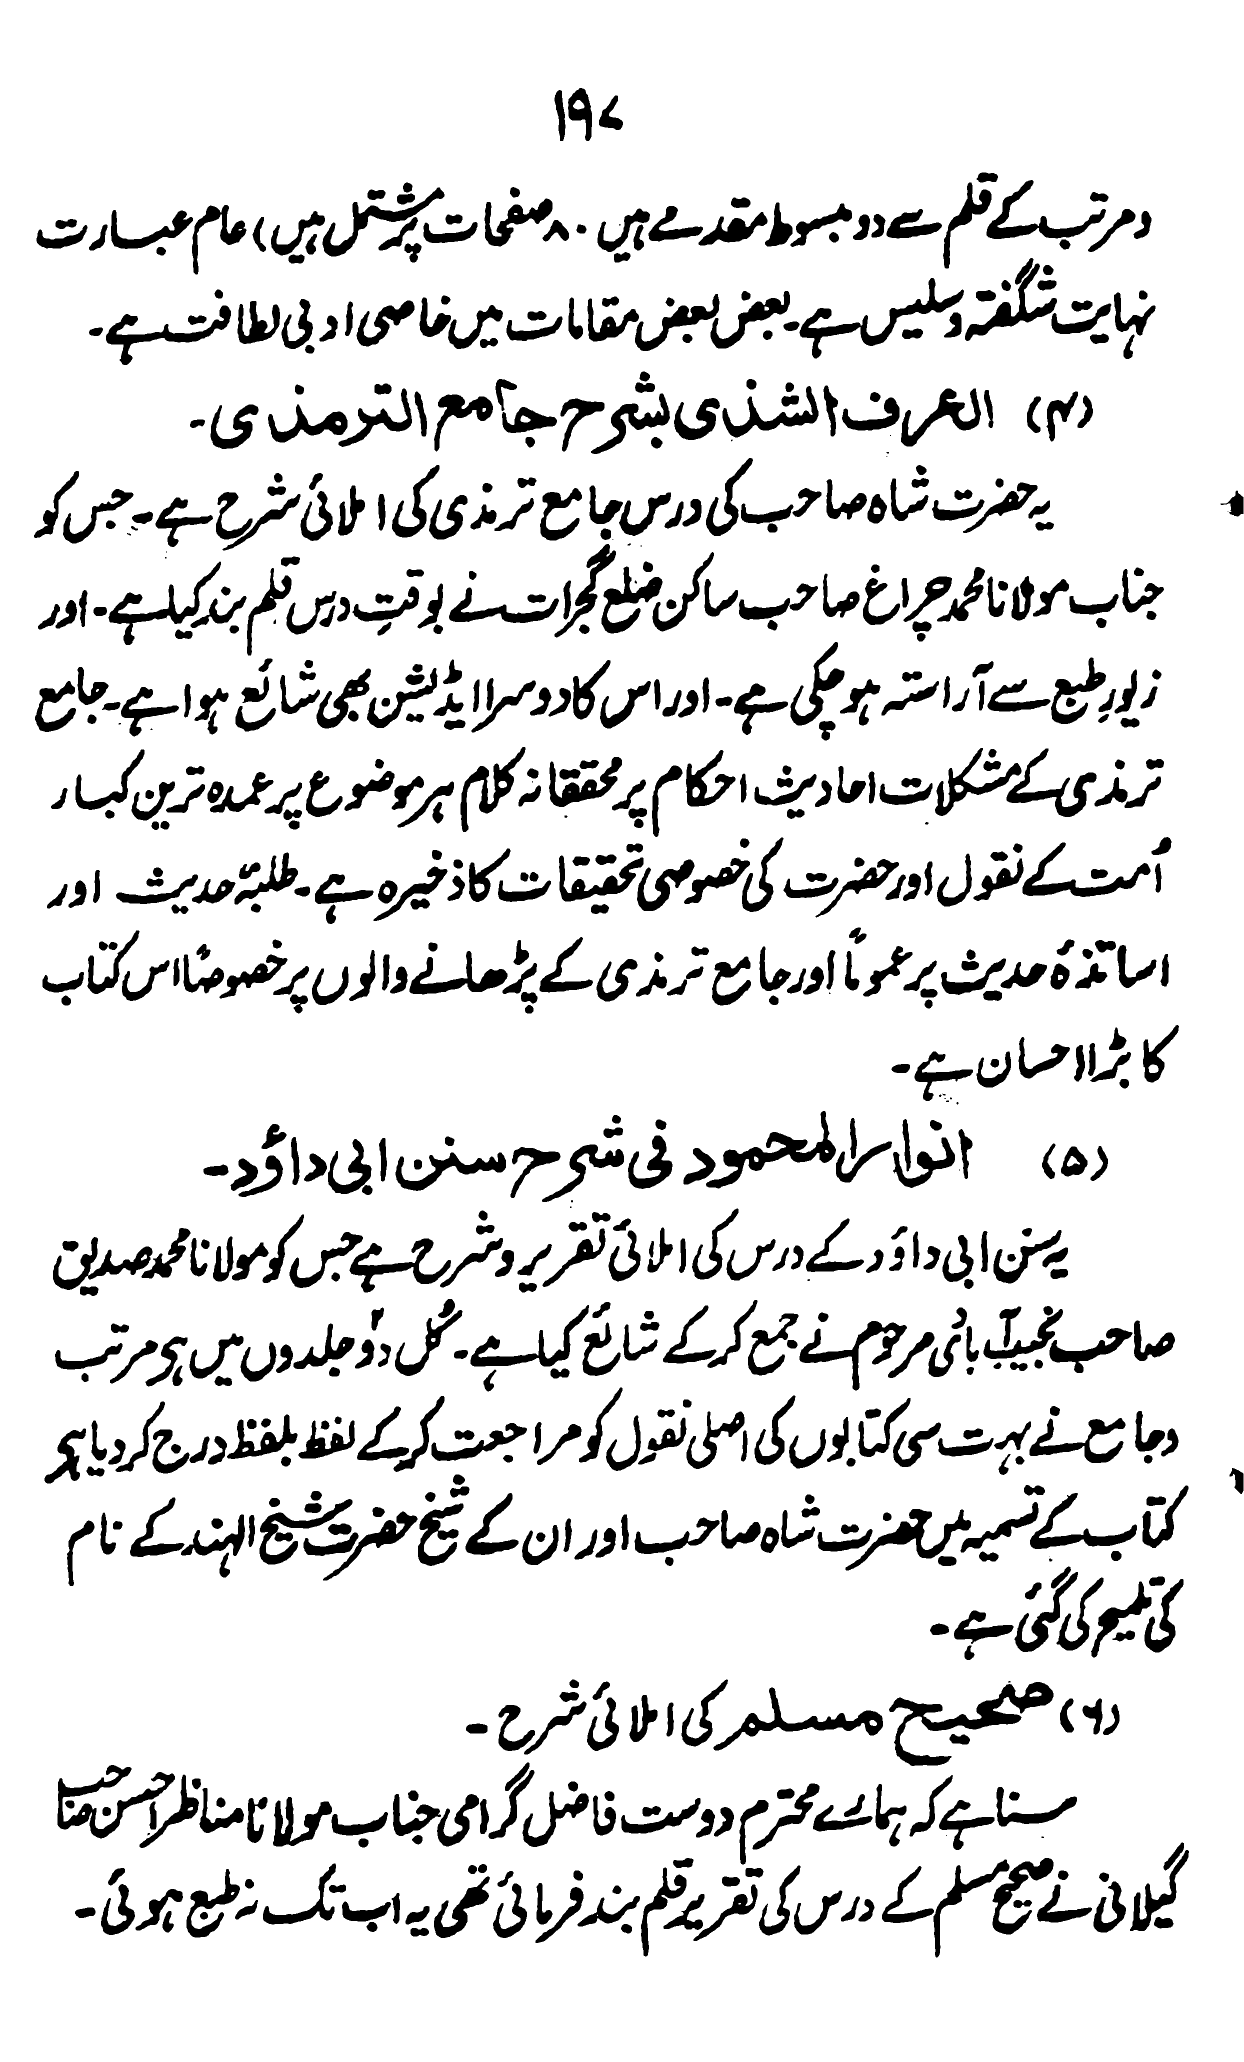 ۱۹۷
(مرتب کے قلم سے دو مبسوط مقدمے ہیں ۸۰ صفحات پر مشتمل ہیں) عام عبارت
نہایت شگفتہ و سلیس ہے۔ بعض بعض مقامات میں خاصی ادبی لطافت ہے۔
(۴) العرف الشذی بشرح جامع الترمذی۔
یہ حضرت شاہ صاحب کی درس جامع ترمذی کی املائی شرح ہے۔ جس کو
جناب مولانا محمد چراغ صاحب ساکن ضلع گجرات نے بوقتِ درس قلم بند کیا ہے۔ اور
زیورِ طبع سے آراستہ ہو چکی ہے۔ اور اس کا دوسرا ایڈیشن بھی شائع ہوا ہے۔ جامع
ترمذی کے مشکلات احادیث احکام پر محققانہ کلام ہر موضوع پر عمدہ ترین کبار
اُمت کے نقول اور حضرت کی خصوصی تحقیقات کا ذخیرہ ہے۔ طلبۂ حدیث اور
اساتذۂ حدیث پر عموماً اور جامع ترمذی کے پڑھانے والوں پر خصوصاً اس کتاب
کا بڑا احسان ہے۔
(۵) انوار المحمود فی شرح سنن ابی داؤد۔
یہ سنن ابی داؤد کے درس کی املائی تقریر و شرح ہے جس کو مولانا محمد صدیق
صاحب نجیب آبادی مرحوم نے جمع کر کے شائع کیا ہے۔ کُل دو جلدوں میں ہے مرتب
و جامع نے بہت سی کتابوں کی اصلی نقول کو مراجعت کر کے لفظ بلفظ درج کر دیا ہے
کتاب کے تسمیہ میں حضرت شاہ صاحب اور ان کے شیخ حضرت شیخ الہند کے نام
کی تلمیح کی گئی ہے۔
(۶) صحیح مسلم کی املائی شرح۔
سنا ہے کہ ہمارے محترم دوست فاضل گرامی جناب مولانا مناظر احسن صاحب
گیلانی نے صحیح مسلم کے درس کی تقریر قلم بند فرمائی تھی یہ اب تک نہ طبع ہوئی۔